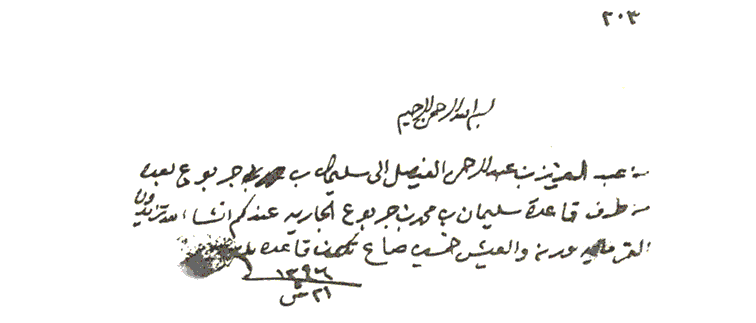 ٢٠٣
بسم الله الرحمن الرحيم
من عبد العزيز بن عبد الرحمن الفيصل الى سليمان بن جربوع بعده
من طرف قاعدة سليمان بن محمد بن جربوع الجاريه عندكم انشا الله تزيدون
والعيش خمسين صاع تكون قاعده
١٣٩٦
٢١ ش